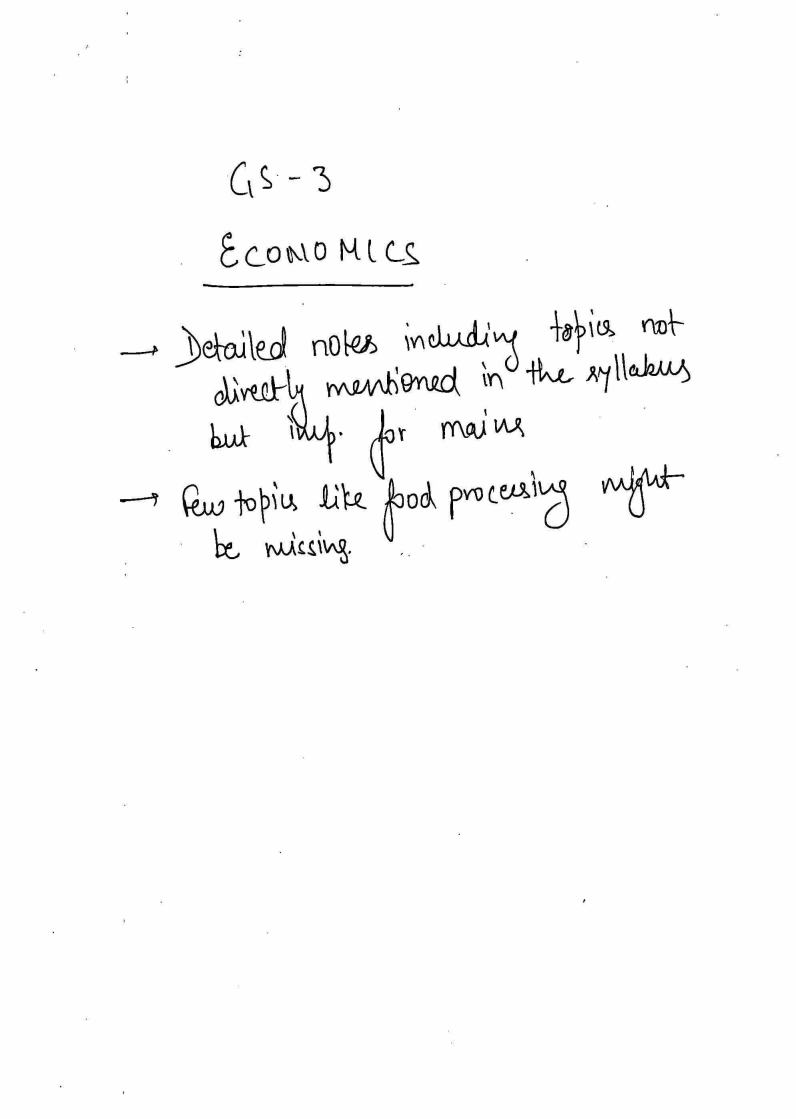 GS - 3
ECONOMICS
→ Detailed notes including topics not
directly mentioned in the syllabus
but imp. for mains
→ Few topics like food processing might
be missing.